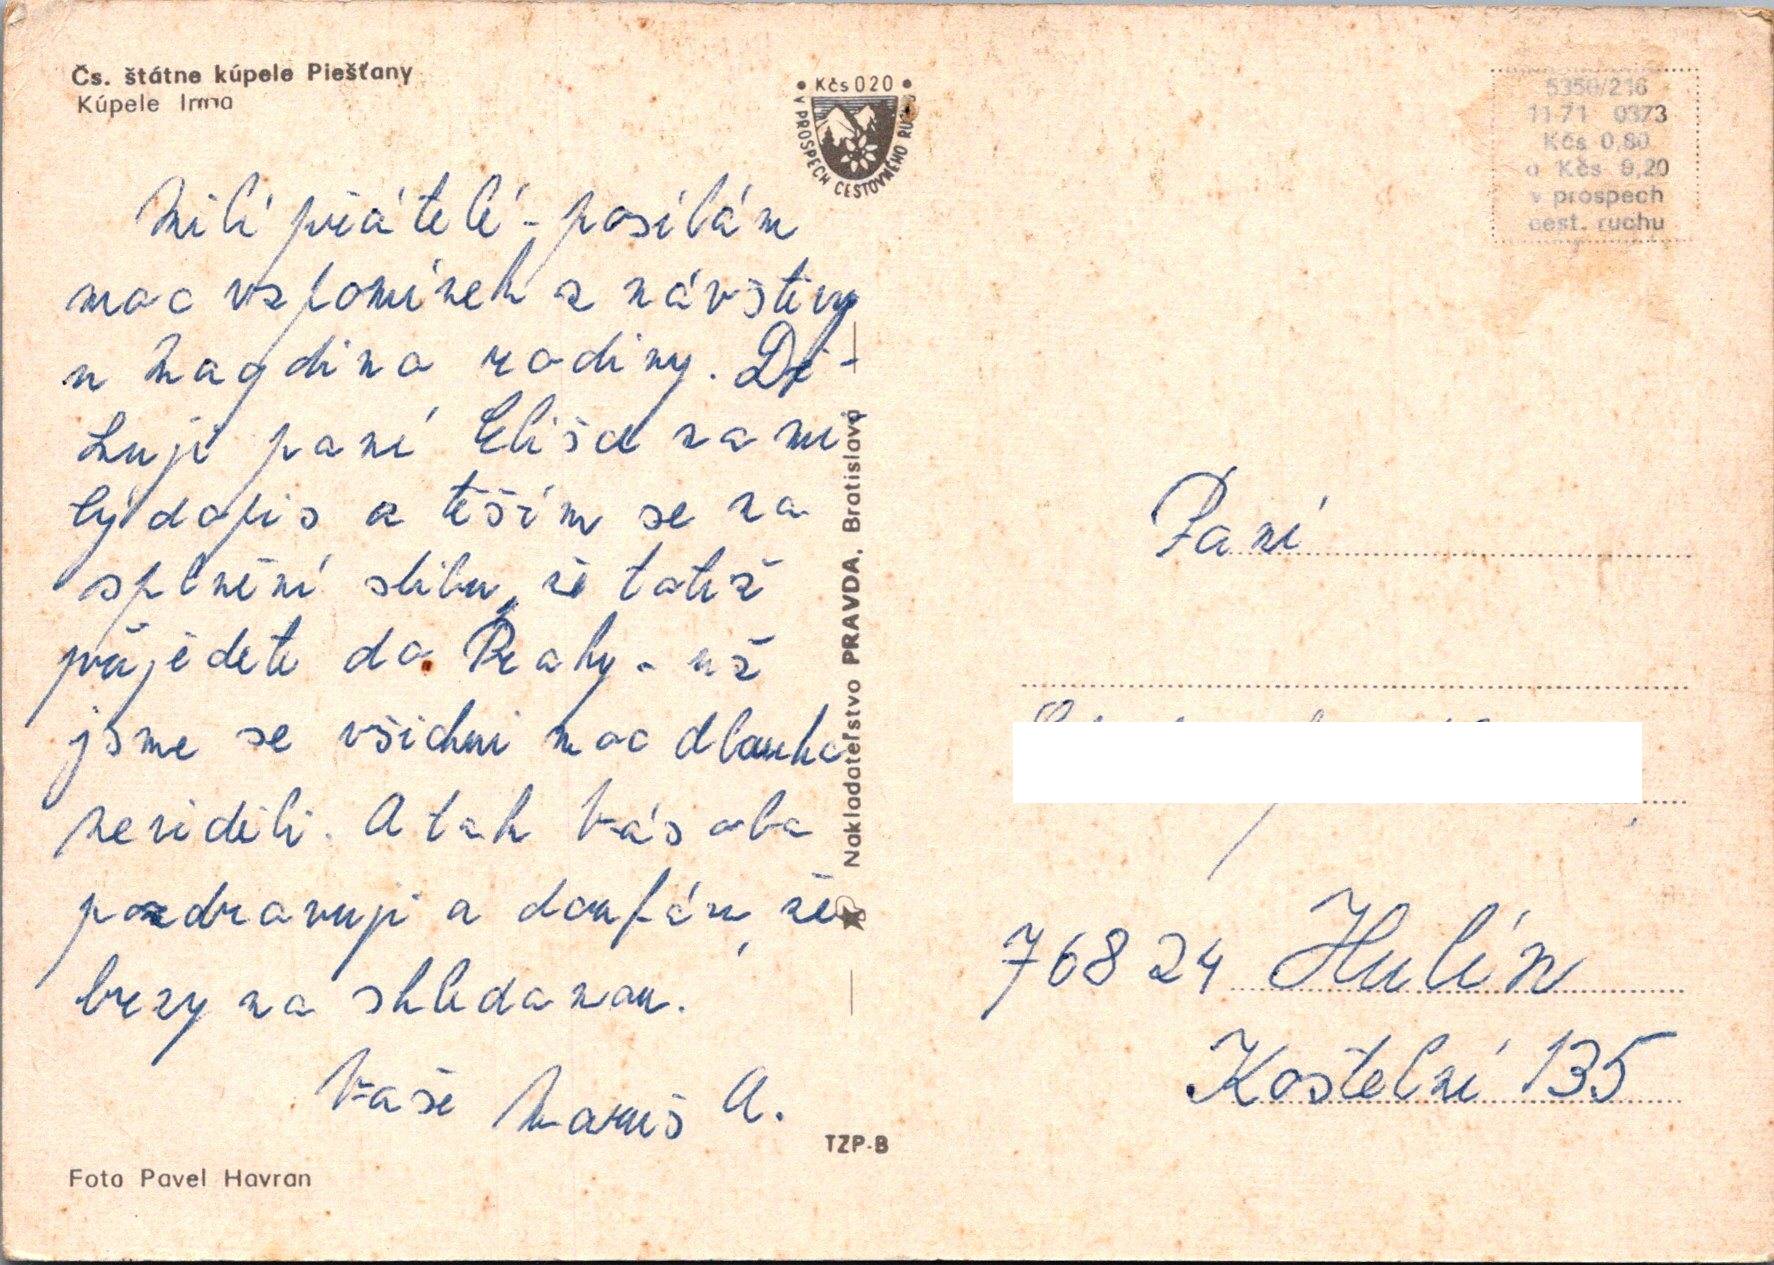 Čs. štátne kúpele Piešťany
Kúpele Irma
• Kčs 020 •
V PROSPECH CESTOVNÉHO RUCHU
5350/216
11-71 0373
Kčs 0,80
a Kčs 0,20
v prospech
cest. ruchu
Milí přátelé - posílám
moc vzpomínek z návštěvy
u Magdina rodiny. Dě-
kuji paní Eliše za mi-
lý dopis a těším se na
splnění slibu, že totiž
přijedete do Prahy - už
jsme se všichni moc dlouho
neviděli. A tak Vás oba
pozdravuji a doufám, že
brzy na shledanou.
Vaše Maruš A.
Foto Pavel Havran
Nakladateľstvo PRAVDA, Bratislava
TZP-B
Paní
76824 Hulín
Kostelní 135